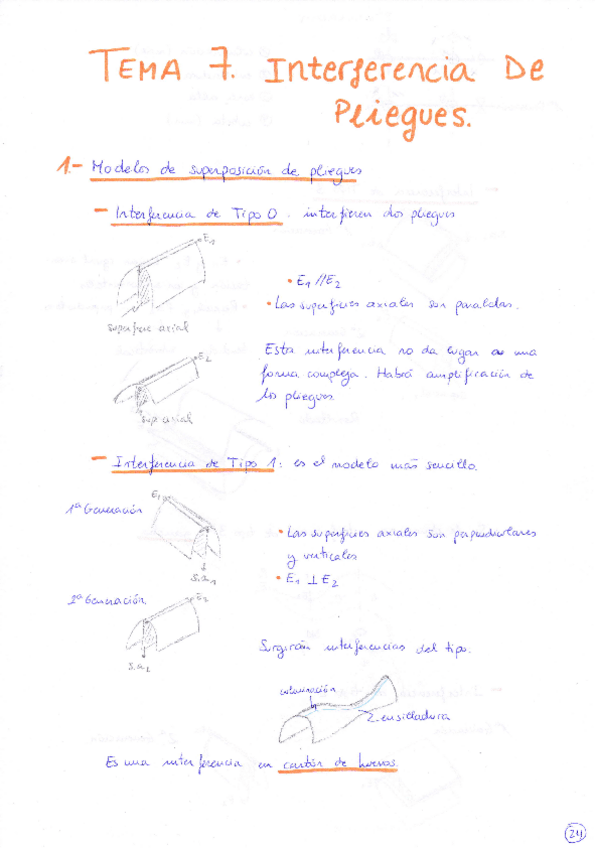 TEMA 7. Interferencia De
Pliegues.
1.- Modelos de superposición de pliegues
- Interferencia de Tipo 0. interfieren dos pliegues
E1
• E1 // E2
• Las superficies axiales son paralelas.
Superficie axial
E2
Esta interferencia no da lugar a una
forma compleja. Habrá amplificación de
los pliegues.
Sup axial
- Interferencia de Tipo 1: es el modelo más sencillo.
E1
1ª Generación
• Las superficies axiales son perpendiculares
y verticales
S.a1
• E1 ⊥ E2
2ª Generación
E2
Surgirán interferencias del tipo.
S.a2
culminación
ensilladura
Es una interferencia en cartón de huevos.
24